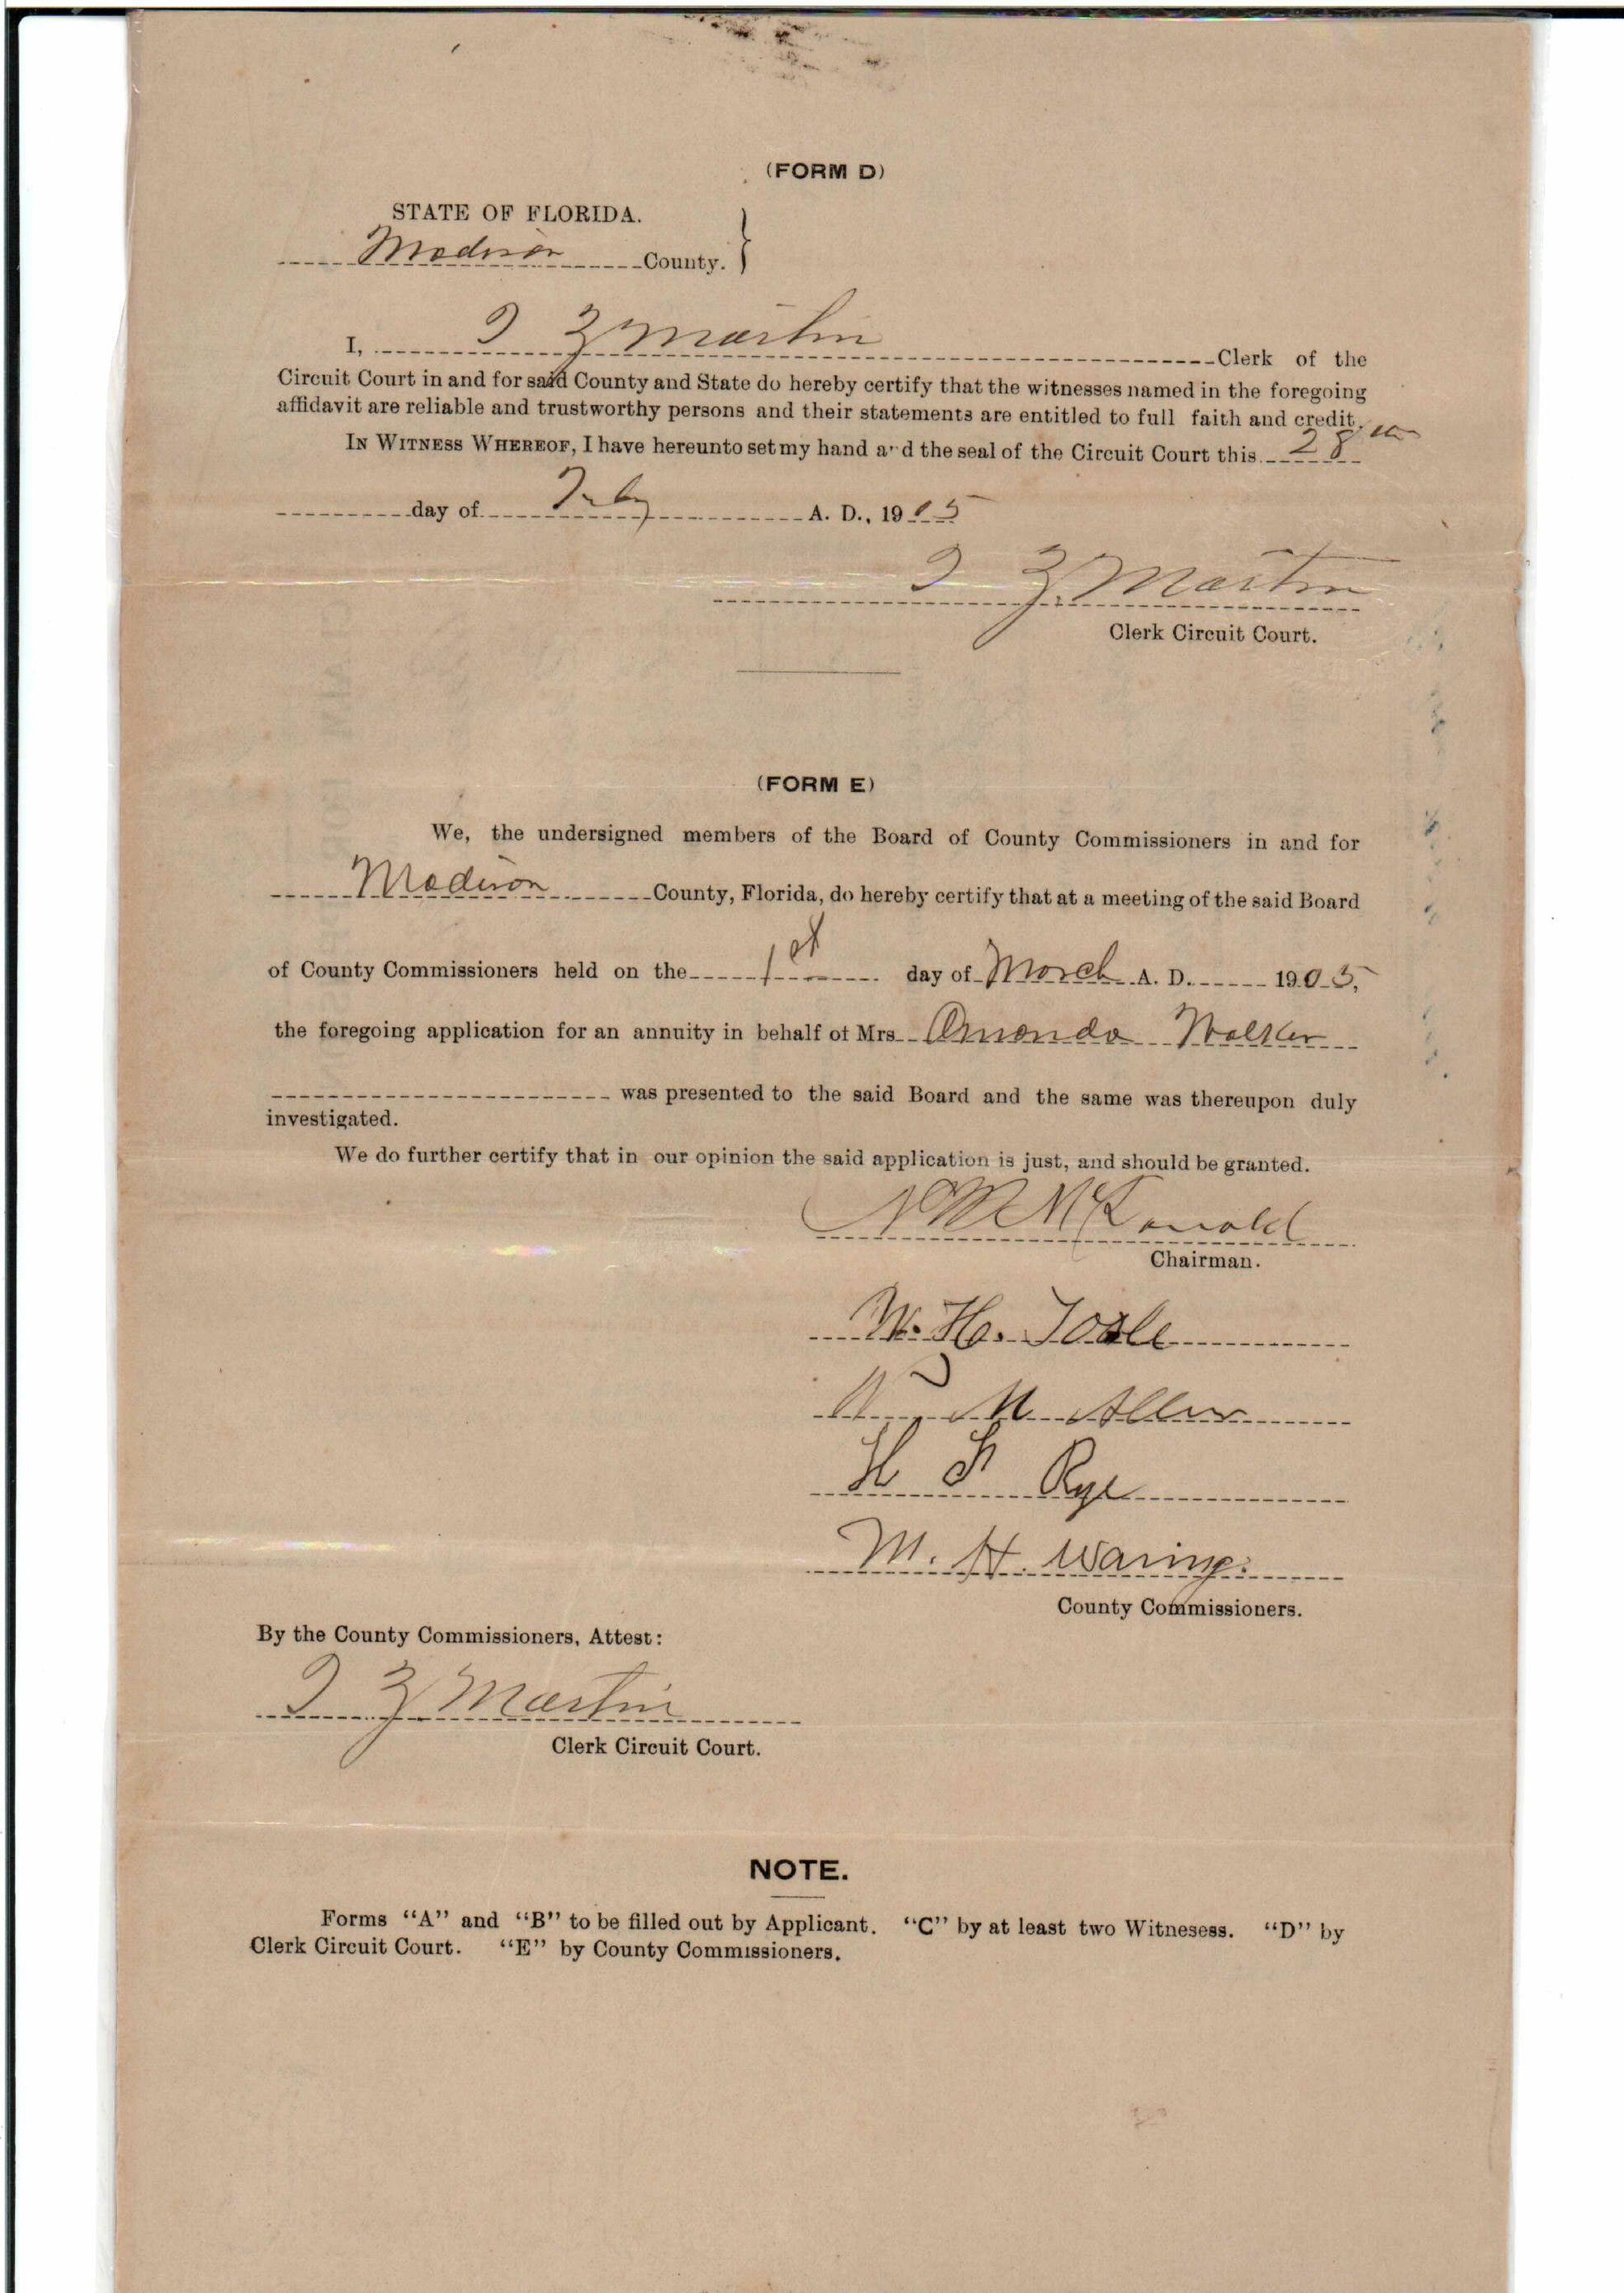 (FORM D)
STATE OF FLORIDA.
Madison County. }
I, Martin Clerk of the
Circuit Court in and for said County and State do hereby certify that the witnesses named in the foregoing
affidavit are reliable and trustworthy persons and their statements are entitled to full faith and credit.
IN WITNESS WHEREOF, I have hereunto set my hand and the seal of the Circuit Court this 28th
day of Feby A. D., 1905
Martin
Clerk Circuit Court.
(FORM E)
We, the undersigned members of the Board of County Commissioners in and for
Madison County, Florida, do hereby certify that at a meeting of the said Board
of County Commissioners held on the 1st day of March A. D. 1905,
the foregoing application for an annuity in behalf of Mrs Amanda Walker
was presented to the said Board and the same was thereupon duly
investigated.
We do further certify that in our opinion the said application is just, and should be granted.
Chairman.
W. H.
W M Allen
H F Rye
M. H. Waring.
County Commissioners.
By the County Commissioners, Attest:
Martin
Clerk Circuit Court.
NOTE.
Forms "A" and "B" to be filled out by Applicant. "C" by at least two Witnesess. "D" by
Clerk Circuit Court. "E" by County Commissioners.